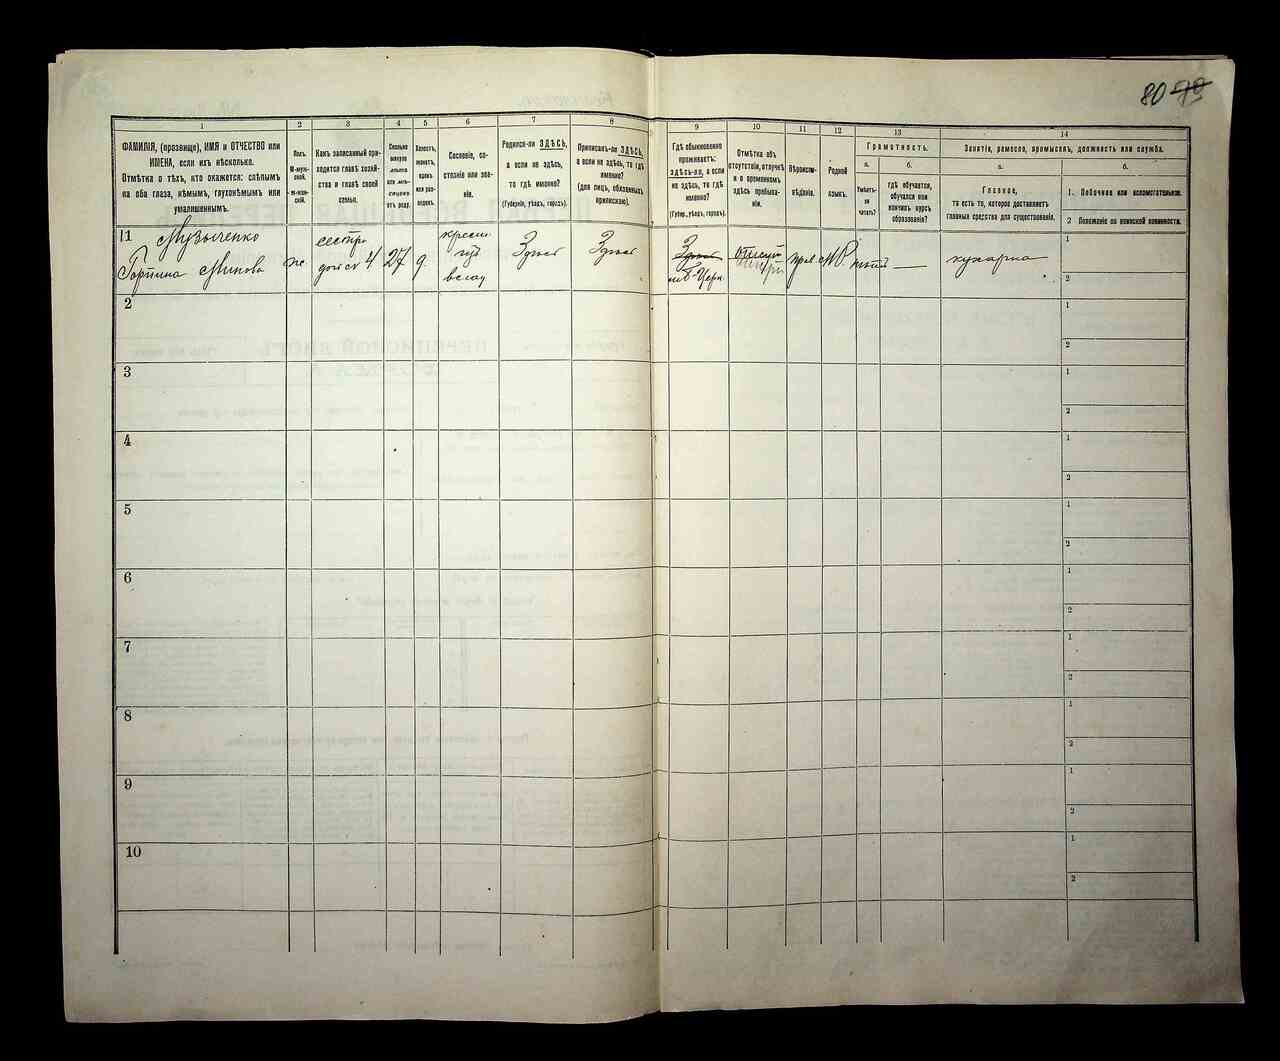 80
1
2
3
4
5
6
7
8
9
10
11
12
13
14
ФАМИЛІЯ, (прозвище), ИМЯ и ОТЧЕСТВО или
ИМЕНА, если ихъ нѣсколько.
Отмѣтка о тѣхъ, кто окажется: слѣпымъ
на оба глаза, нѣмымъ, глухонѣмымъ или
умалишеннымъ.
Полъ.
М-муж-
ской.
Ж-жен-
скій.
Какъ записанный при-
ходится главѣ хозяй-
ства и главѣ своей
семьи.
Сколько
минуло
лѣтъ
или мѣ-
сяцевъ
отъ роду.
Холостъ,
женатъ,
вдовъ
или раз-
веденъ.
Сословіе, со-
стояніе или зва-
ніе.
Родился-ли ЗДѢСЬ,
а если не здѣсь,
то гдѣ именно?
(Губернія, уѣздъ, городъ).
Приписанъ-ли ЗДѢСЬ,
а если не здѣсь, то гдѣ
именно?
(Для лицъ, обязанныхъ
припискою).
Гдѣ обыкновенно
проживаетъ:
здѣсь-ли, а если
не здѣсь, то гдѣ
именно?
(Губер., уѣздъ, городъ).
Отмѣтка объ
отсутствіи, отлучкѣ
и о временномъ
здѣсь пребыва-
ніи.
Вѣроиспо-
вѣданіе.
Родной
языкъ.
Грамотность.
а.
б.
Умѣетъ-
ли
читать?
гдѣ обучается,
обучался или
кончилъ курсъ
образованія?
Занятіе, ремесло, промыселъ, должность или служба.
а.
б.
Главное,
то есть то, которое доставляетъ
главныя средства для существованія.
1. Побочное или вспомогательное.
2 Положеніе по воинской повинности.
11 Музыченко
Горпина
ж
сестра
4
27
д
Здѣсь
Здѣсь
Здѣсь
прав.
МР
нѣтъ
—
кухарка
1
2
2
1
2
3
1
2
4
1
2
5
1
2
6
1
2
7
1
2
8
1
2
9
1
2
10
1
2